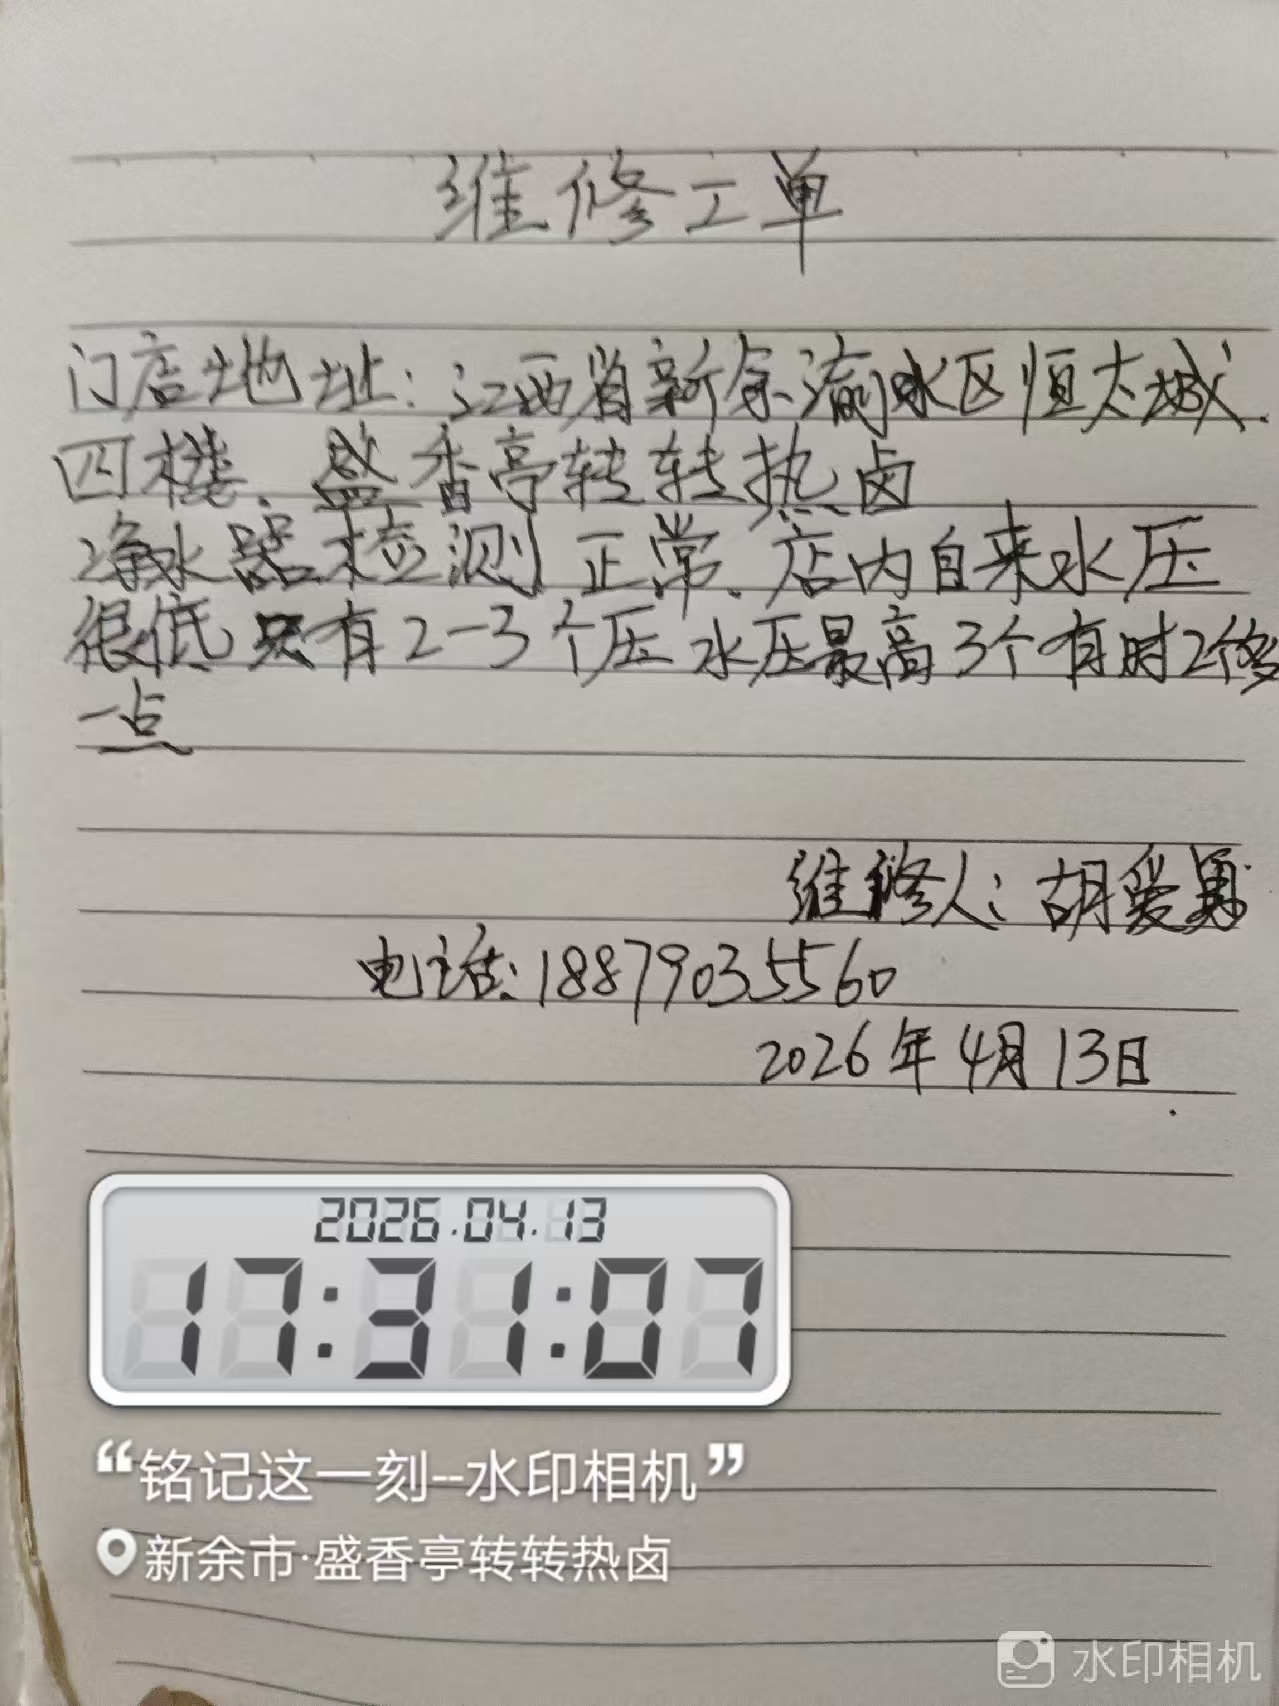 维修工单
门店地址：江西省新余渝水区恒太城.
四楼、盛香亭转转热卤
净水器检测正常、店内自来水压
很低只有2-3个压水压最高3个有时2个多
一点
维修人：胡爱勇
电话：18879035560
2026年4月13日
2026.04.13
17:31:07
“铭记这一刻--水印相机”
新余市·盛香亭转转热卤
水印相机